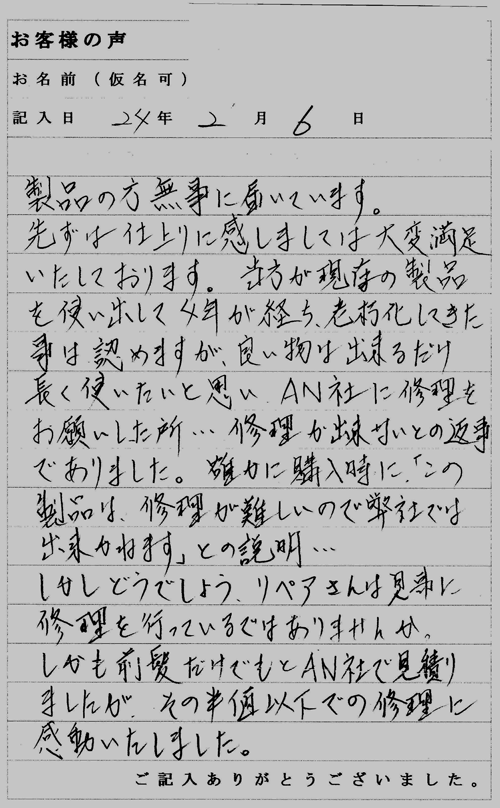 お客様の声
お名前（仮名可）
記入日 24年 2月 6日
製品の方無事に届いています。
先ずは仕上りに感しましては大変満足
いたしております。当方が現存の製品
を使い出して4年が経ち、老朽化してきた
事は認めますが、良い物は出来るだけ
長く使いたいと思い AN社に修理を
お願いした所… 修理が出来ないとの返事
でありました。確かに購入時に、「この
製品は、修理が難しいので弊社では
出来かねます」との説明…
しかしどうでしょう、リペアさんは見事に
修理を行っているではありませんか。
しかも前髪だけでもとAN社で見積り
ましたが、その半値以下での修理に
感動いたしました。
ご記入ありがとうございました。